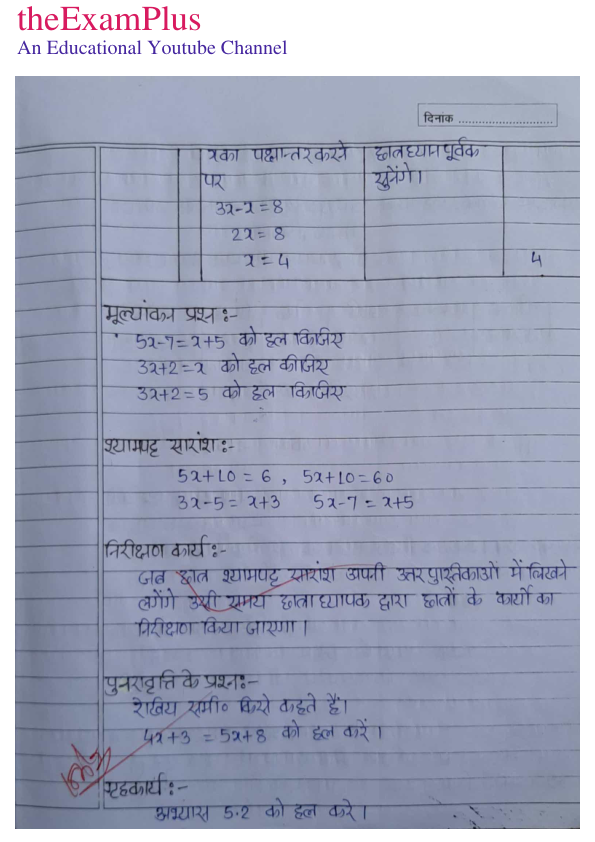 theExamPlus
An Educational Youtube Channel
दिनांक ............................
x का पक्षान्तर करने
पर
3x-x=8
2x=8
x=4
छात्र ध्यान पूर्वक
सुनेंगे।
4
मूल्यांकन प्रश्न :-
5x-7=x+5 को हल किजिए
3x+2=x को हल कीजिए
3x+2=5 को हल किजिए
श्यामपट्ट सारांश :-
5x+10=6 , 5x+10=60
3x-5=x+3 5x-7=x+5
निरीक्षण कार्य :-
जब छात्र श्यामपट्ट सारांश अपनी उत्तर पुस्तिकाओं में लिखने
लगेंगे उसी समय छात्राध्यापक द्वारा छात्रों के कार्यो का
निरीक्षण किया जाएगा।
पुनरावृत्ति के प्रश्न:-
रेखिय समी० किसे कहते हैं।
4x+3 = 5x+8 को हल करें।
गृहकार्य :-
अभ्यास 5.2 को हल करे।